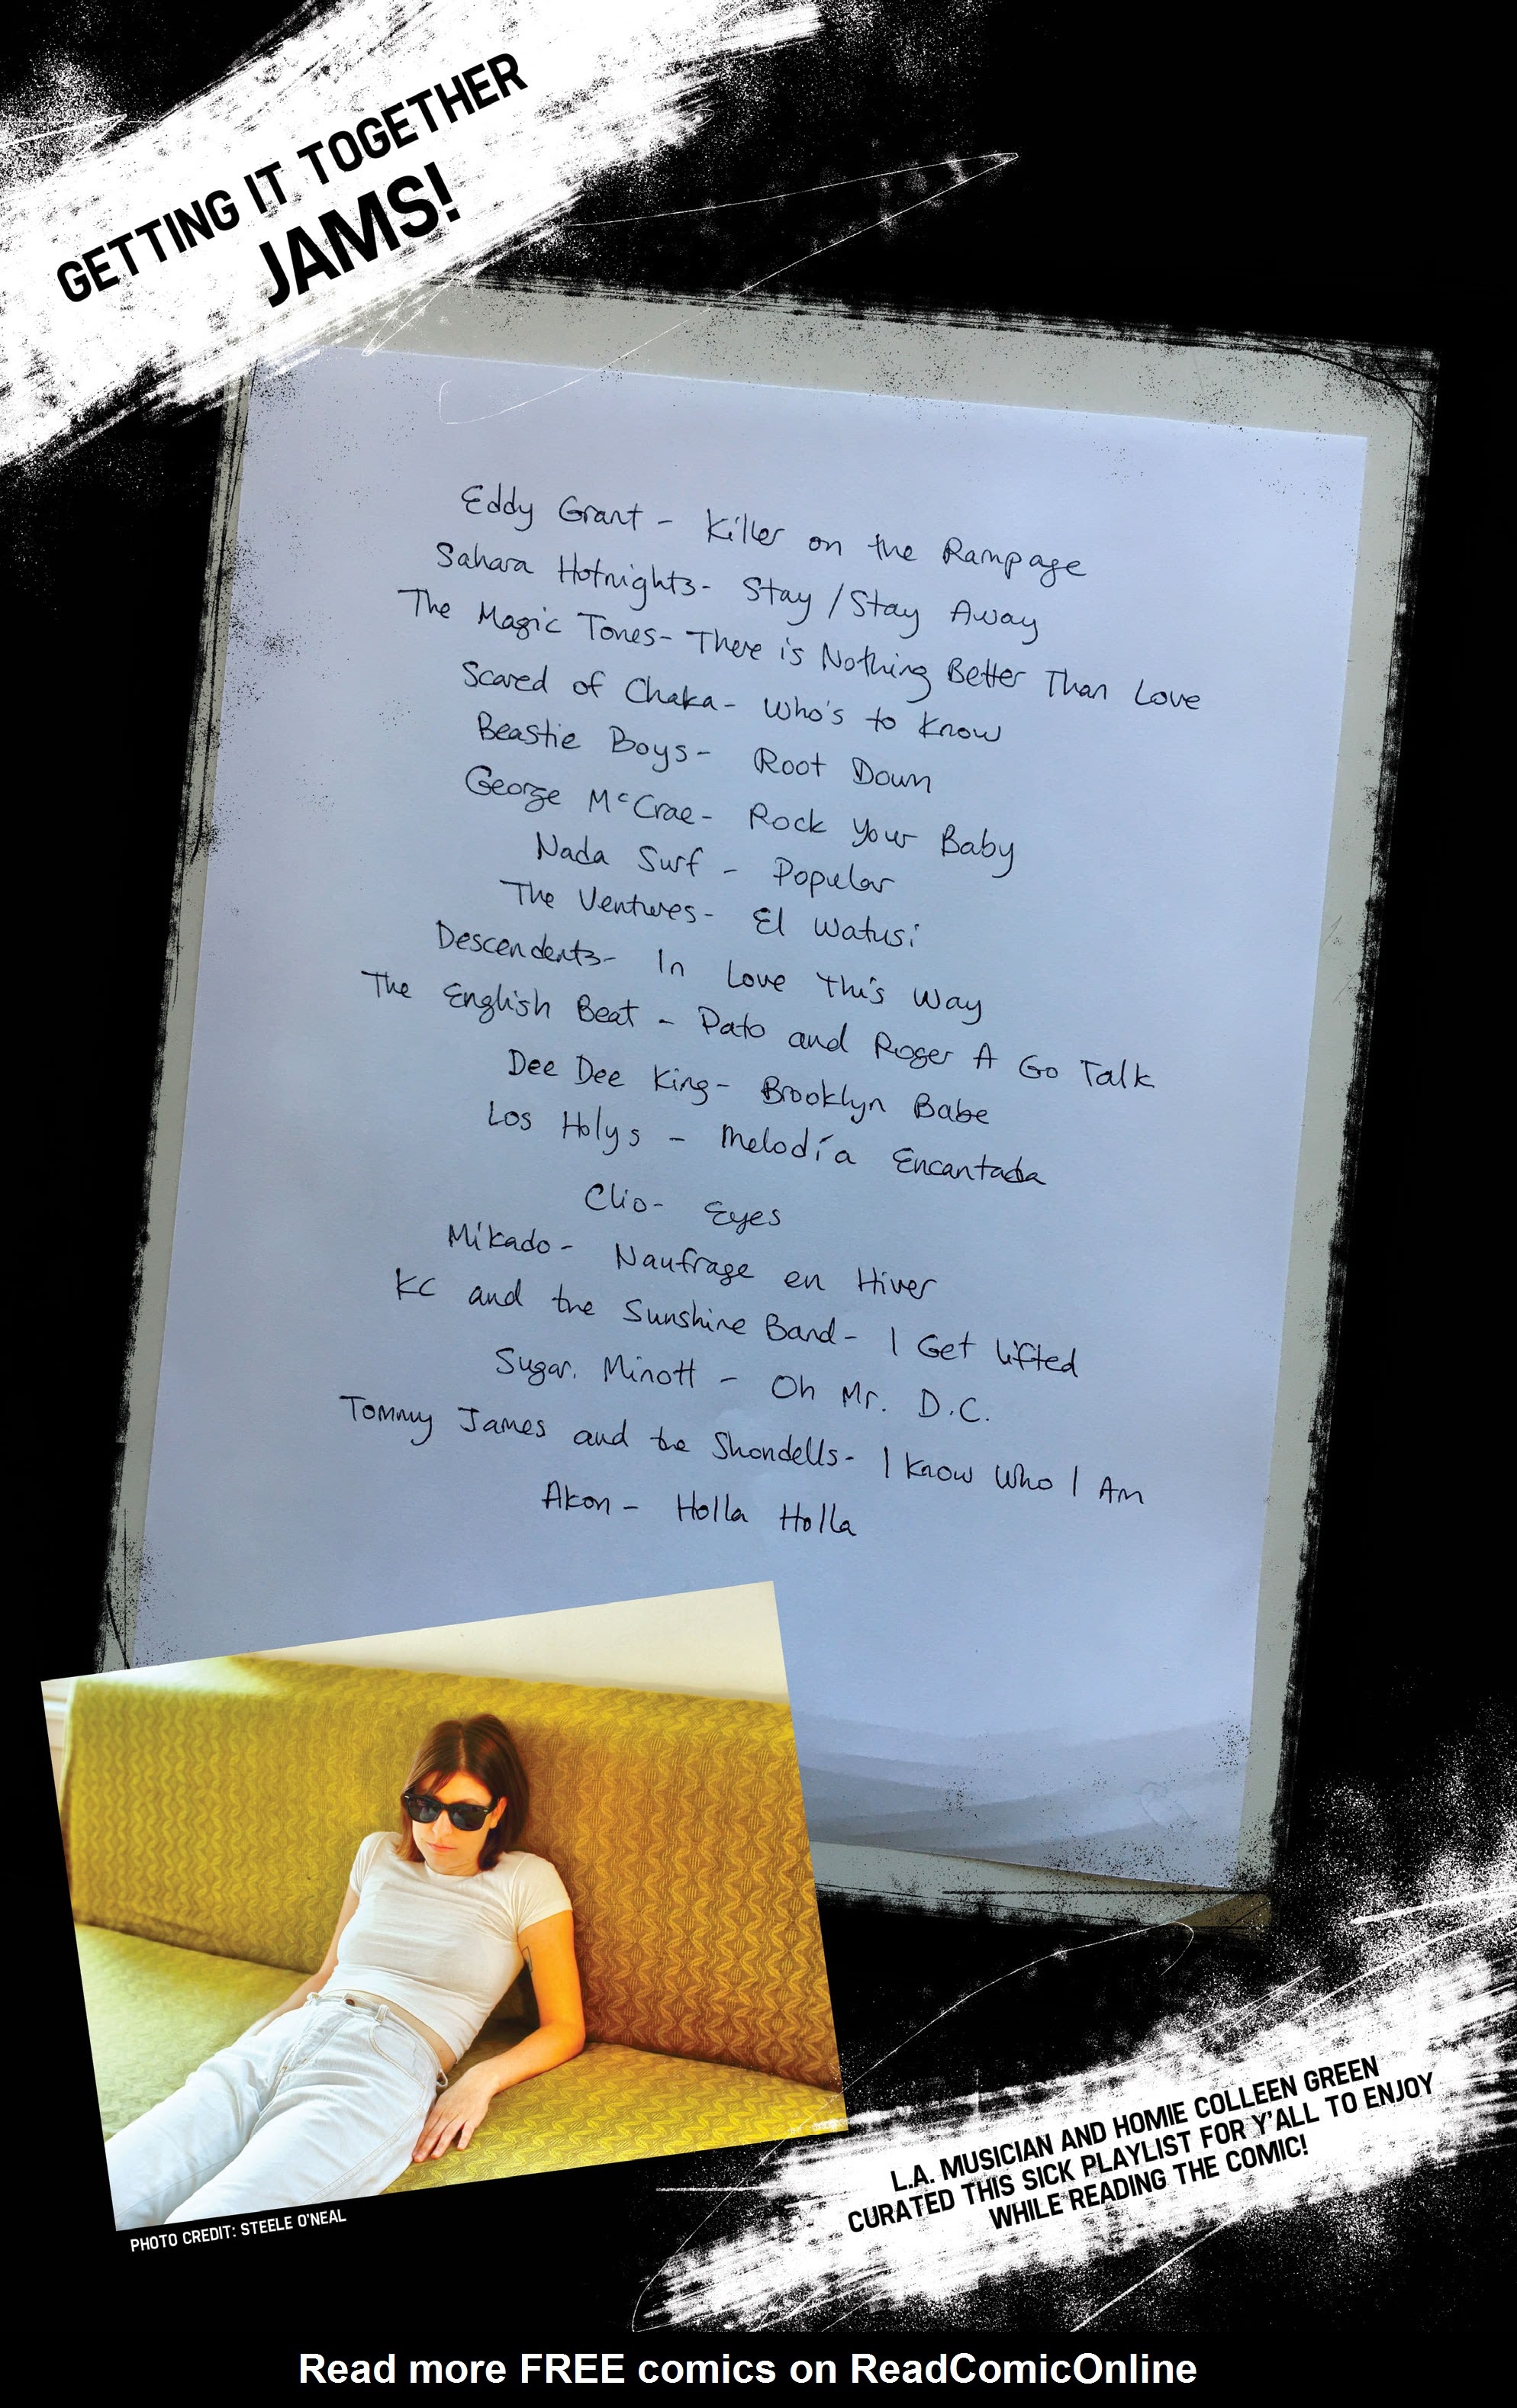 GETTING IT TOGETHER
JAMS!
Eddy Grant - Killer on the Rampage
Sahara Hotnights - Stay / Stay Away
The Magic Tones - There is Nothing Better Than Love
Scared of Chaka - Who's to Know
Beastie Boys - Root Down
George McCrae - Rock Your Baby
Nada Surf - Popular
The Ventures - El Watusi
Descendents - In Love This Way
The English Beat - Pato and Roger A Go Talk
Dee Dee King - Brooklyn Babe
Los Holys - Melodía Encantada
Clio - Eyes
Mikado - Naufrage en Hiver
KC and the Sunshine Band - I Get Lifted
Sugar Minott - Oh Mr. D.C.
Tommy James and the Shondells - I Know Who I Am
Akon - Holla Holla
PHOTO CREDIT: STEELE O'NEAL
L.A. MUSICIAN AND HOMIE COLLEEN GREEN
CURATED THIS SICK PLAYLIST FOR Y'ALL TO ENJOY
WHILE READING THE COMIC!
Read more FREE comics on ReadComicOnline